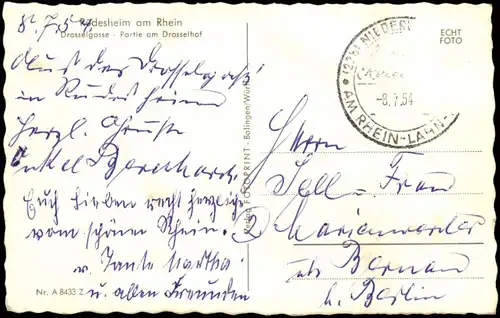 8.7.54
Rüdesheim am Rhein
Drosselgasse - Partie am Drosselhof
Aus der Drosselgasse
in Rüdesheim
herzl. Grüsse
Onkel Bernhard.
Euch Lieben recht herzliche
vom schönen Rhein.
v. Tante Martha
u. allen Freunden
Nr. A 8433 Z
Verlag FOTOPRINT - Balingen/Württ.
ECHT
FOTO
(22a) NIEDER
-8.7.54
AM RHEIN-LAHN-
Herrn
Frau
Marienwerder
bei Bernau
b. Berlin